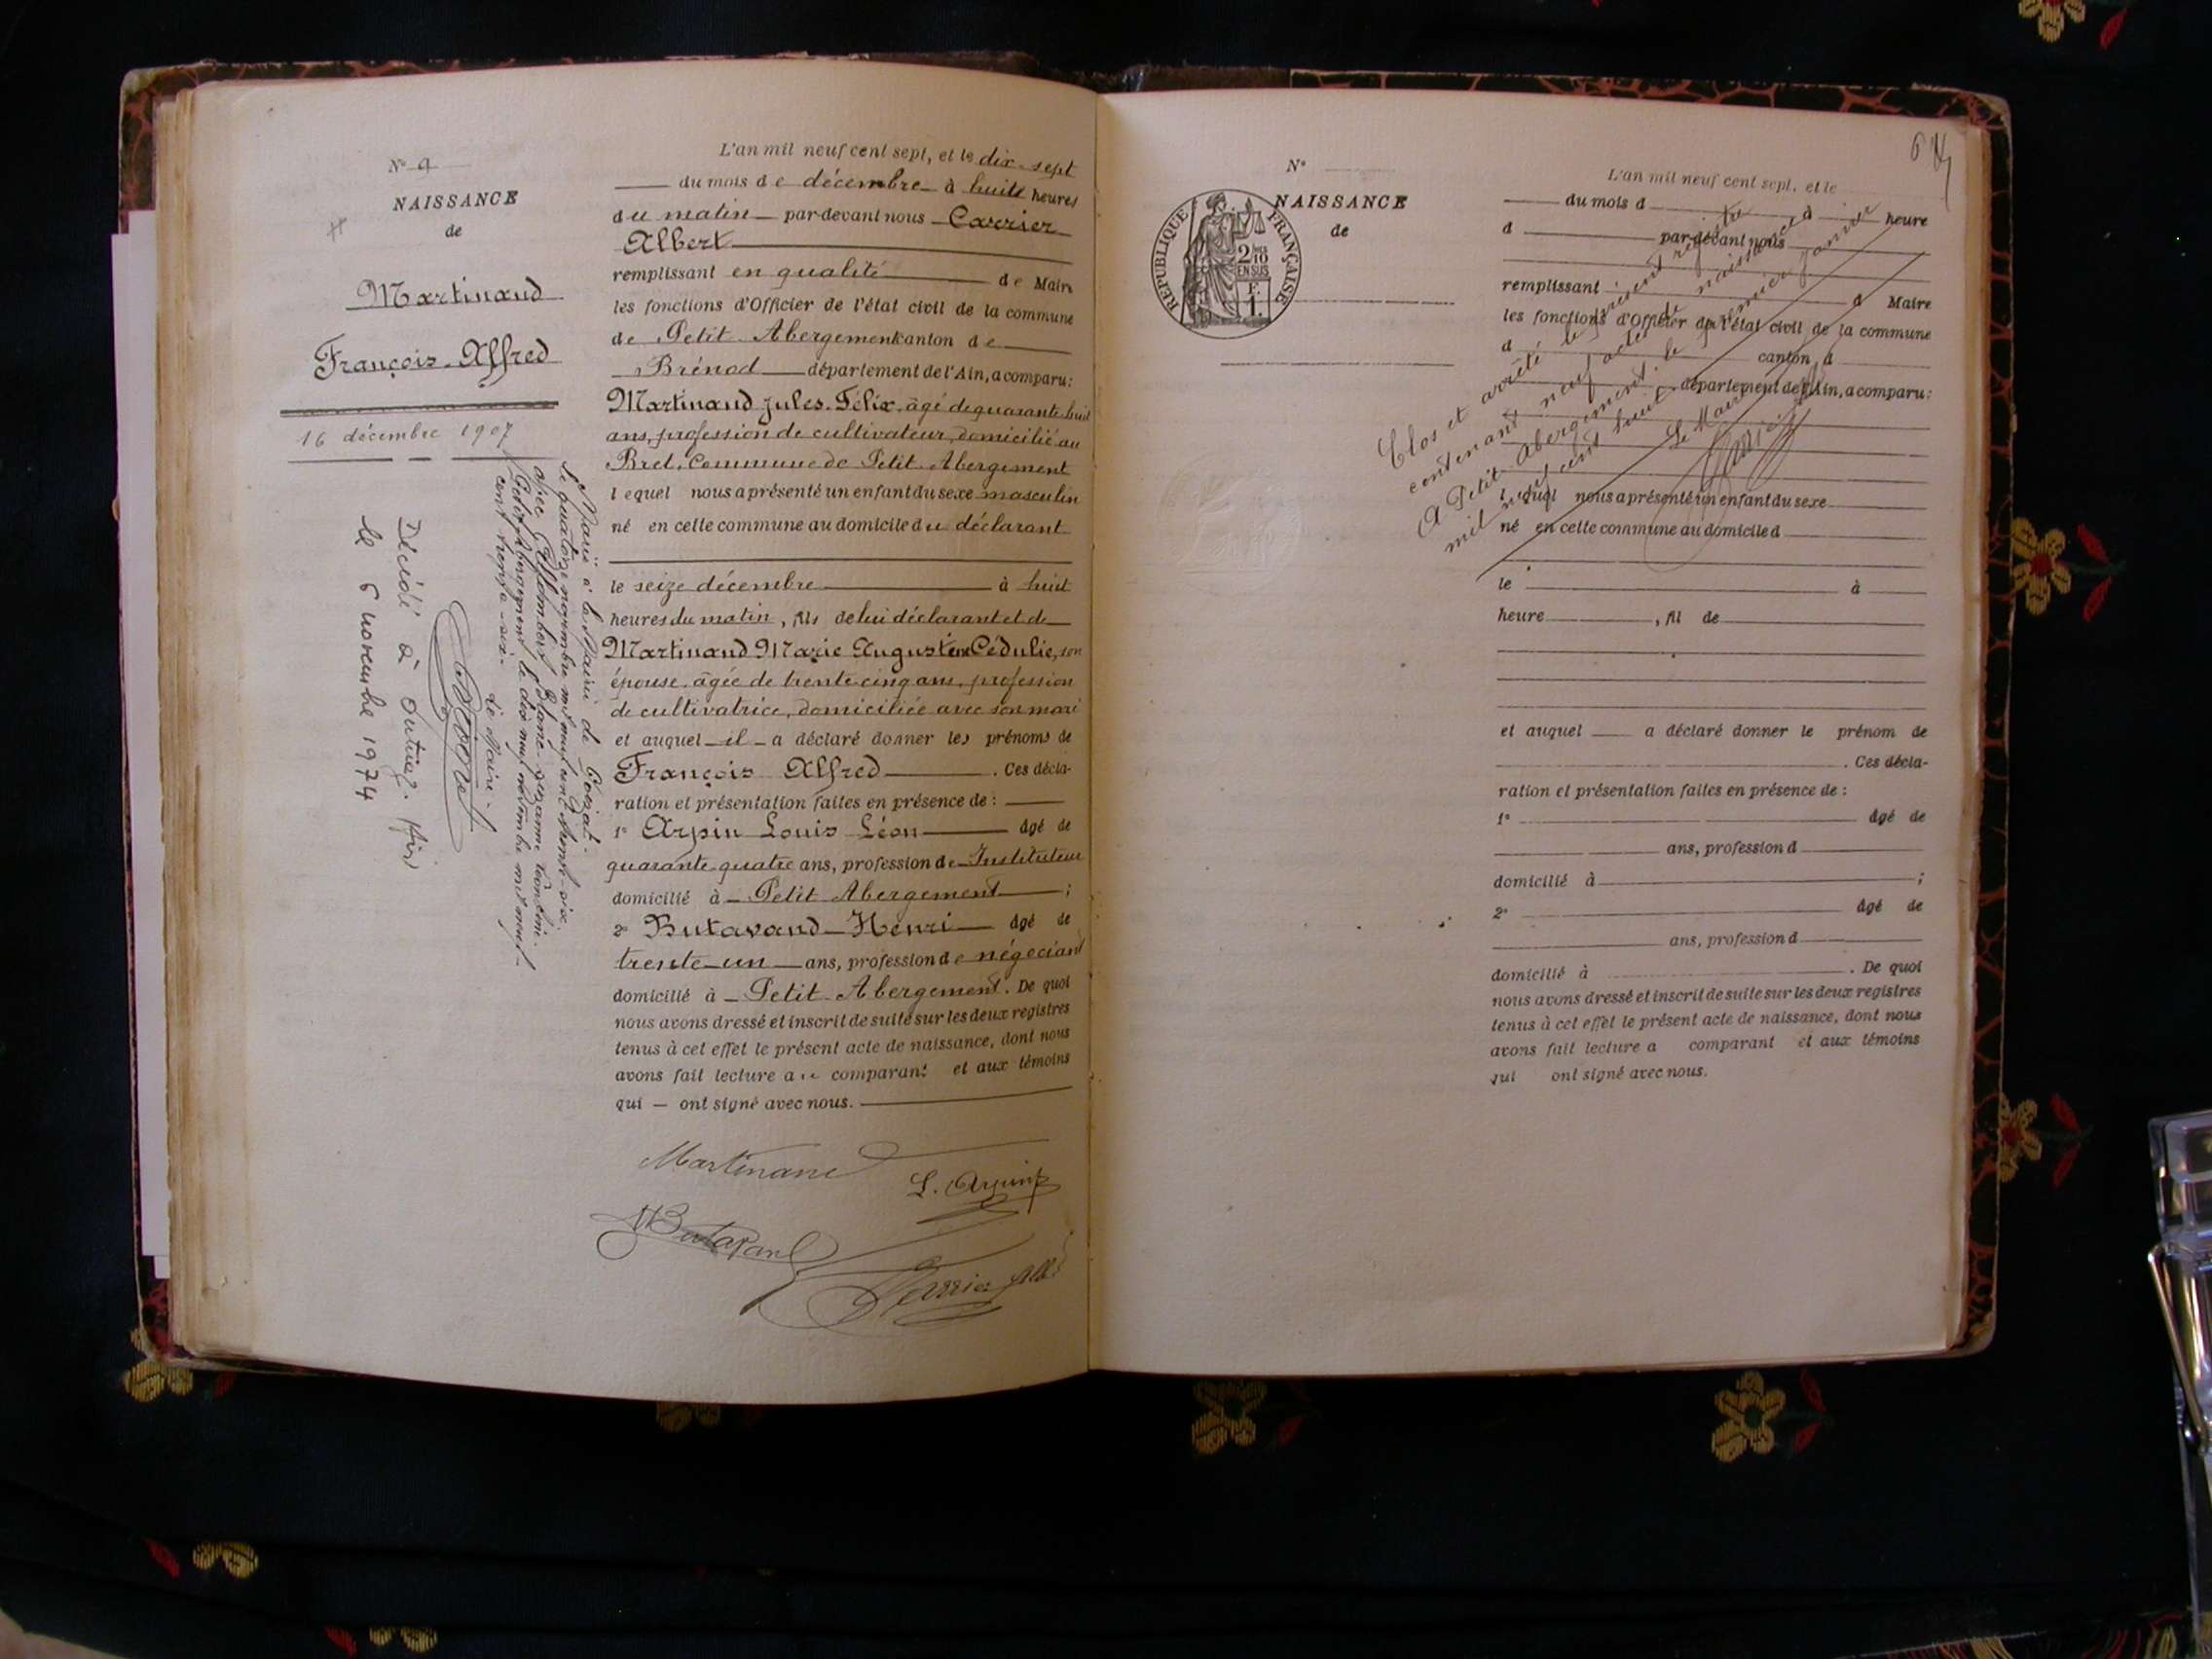 N° 9
NAISSANCE
de
Martinand
François Alfred
16 décembre 1907
Marié à la Mairie de Corcat
le quatorze novembre mil neuf cent trente-six
avec Blanc Suzanne
Petit Abergement le dix neuf novembre mil neuf
cent trente-six. Le Maire.
Décédé à
le 6 novembre 1974
L'an mil neuf cent sept, et le dix-sept
du mois de décembre à huit heures
du matin par-devant nous Carrier
Albert
remplissant en qualité de Maire
les fonctions d'Officier de l'état civil de la commune
de Petit Abergement canton de
Brénod département de l'Ain, a comparu:
Martinand Jules Félix, âgé de quarante huit
ans, profession de cultivateur, domicilié au
Bret, commune de Petit Abergement
lequel nous a présenté un enfant du sexe masculin
né en cette commune au domicile du déclarant
le seize décembre à huit
heures du matin, fils de lui déclarant et de
Martinand Marie Augustine Cédulie, son
épouse, âgée de trente cinq ans, profession
de cultivatrice, domiciliée avec son mari
et auquel il a déclaré donner les prénoms de
François Alfred. Ces décla-
ration et présentation faites en présence de :
1° Arpin Louis Léon âgé de
quarante quatre ans, profession de Instituteur
domicilié à Petit Abergement ;
2° Butavand Henri âgé de
trente un ans, profession de négociant
domicilié à Petit Abergement. De quoi
nous avons dressé et inscrit de suite sur les deux registres
tenus à cet effet le présent acte de naissance, dont nous
avons fait lecture au comparant et aux témoins
qui ont signé avec nous.
Martinand
L. Arpin
Butavand
Carrier Albt
64
N°
NAISSANCE
de
REPUBLIQUE FRANÇAISE
2/10
EN SUS
1F.
L'an mil neuf cent sept, et le
du mois d à heure
d par-devant nous
remplissant d Maire
les fonctions d'Officier de l'état civil de la commune
d canton d
département de l'Ain, a comparu:
Clos et arrêté le présent registre
contenant neuf actes de naissance
A Petit Abergement, le premier janvier
mil neuf cent huit
Le Maire
Carrier
l equel nous a présenté un enfant du sexe
né en cette commune au domicile d
le à
heure , fil de
et auquel a déclaré donner le prénom de
. Ces décla-
ration et présentation faites en présence de :
1° âgé de
ans, profession d
domicilié à ;
2° âgé de
ans, profession d
domicilié à . De quoi
nous avons dressé et inscrit de suite sur les deux registres
tenus à cet effet le présent acte de naissance, dont nous
avons fait lecture a comparant et aux témoins
qui ont signé avec nous.